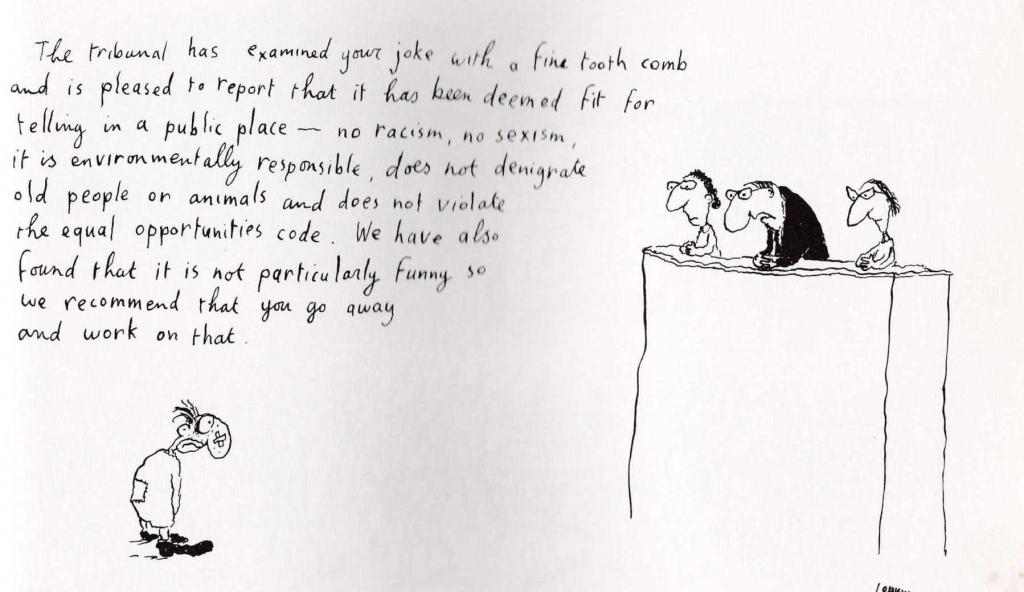 The tribunal has examined your joke with a fine tooth comb
and is pleased to report that it has been deemed fit for
telling in a public place — no racism, no sexism,
it is environmentally responsible, does not denigrate
old people or animals and does not violate
the equal opportunities code. We have also
found that it is not particularly funny so
we recommend that you go away
and work on that.